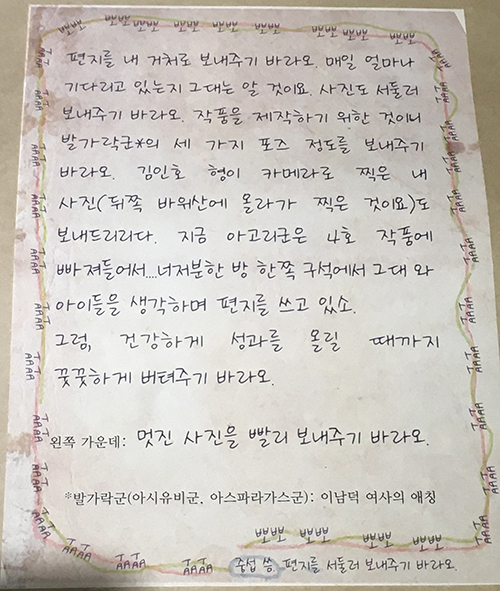 뽀뽀 뽀뽀 뽀뽀 뽀뽀 뽀뽀 뽀뽀 뽀뽀
편지를 내 거처로 보내주기 바라오. 매일 얼마나
기다리고 있는지 그대는 알 것이오. 사진도 서둘러
보내주기 바라오. 작품을 제작하기 위한 것이니
발가락군*의 세 가지 포즈 정도를 보내주기
바라오. 김인호 형이 카메라로 찍은 내
사진(뒤쪽 바위산에 올라가 찍은 것이요)도
보내드리리다. 지금 아고리군은 4호 작품에
빠져들어서...너저분한 방 한쪽 구석에서 그대와
아이들을 생각하며 편지를 쓰고 있소.
그럼, 건강하게 성과를 올릴 때까지
꿋꿋하게 버텨주기 바라오.
왼쪽 가운데: 멋진 사진을 빨리 보내주기 바라오.
*발가락군(아시유비군, 아스파라가스군): 이남덕 여사의 애칭
뽀뽀 뽀뽀 뽀뽀 뽀뽀
중섭 씀 편지를 서둘러 보내주기 바라오